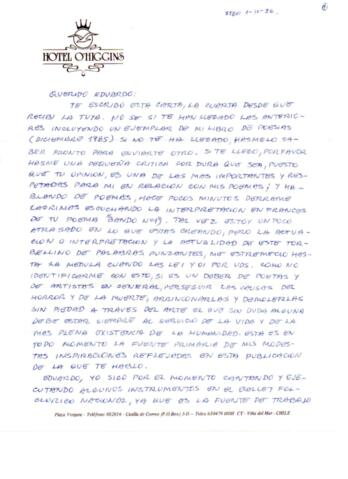 STGO 1-11-86.
HOTEL O'HIGGINS
QUERIDO EDUARDO:
TE ESCRIBO ESTA CARTA, LA CUARTA DESDE QUE
RECIBI LA TUYA. NO SE SI TE HAN LLEGADO LAS ANTERIO-
RES INCLUYENDO UN EJEMPLAR DE MI LIBRO DE POESIAS
(DICIEMBRE 1985) SI NO TE HA LLEGADO, HASMELO SA-
BER PRONTO PARA ENVIARTE OTRO. SI TE LLEGO, POR FAVOR
HASME UNA PEQUEÑA CRITICA POR DURA QUE SEA, PUESTO
QUE TU OPINION, ES UNA DE LAS MAS IMPORTANTES Y RES-
PETADAS PARA MI EN RELACION CON MIS POEMAS; Y HA-
BLANDO DE POEMAS, HACE POCOS MINUTOS DERRAME
LAGRIMAS ESCUCHANDO LA INTERPRETACION EN FRANCES
DE TU POEMA "BANDO Nº19". TAL VEZ ESTOY UN POCO
ATRASADO EN LO QUE ESTAS CREANDO, PERO LA ACTUA-
CION O INTERPRETACION Y LA ACTUALIDAD DE ESTE TOR-
BELLINO DE PALABRAS PUNZANTES, ME ESTREMECIO HAS-
TA LA MEDULA CUANDO LAS LEI Y OI POR VOS. COMO NO
IDENTIFICARME CON ESTO, SI ES UN DEBER DE POETAS Y
DE ARTISTAS EN GENERAL, PERSEGUIR LAS CAUSAS DEL
HORROR Y DE LA MUERTE, ARRINCONARLAS Y DEMOLERLAS
SIN PIEDAD A TRAVES DEL ARTE EL QUE SIN DUDA ALGUNA
DEBE ESTAR SIEMPRE AL SERVICIO DE LA VIDA Y DE LA
MAS PLENA EXISTENCIA DE LA HUMANIDAD. ESTA ES EN
TODO MOMENTO LA FUENTE PRIMARIA DE MIS MODES-
TAS INSPIRACIONES REFLEJADAS EN ESTA PUBLICACION
DE LA QUE TE HABLO.
EDUARDO, YO SIGO POR EL MOMENTO CANTANDO Y EJE-
CUTANDO ALGUNOS INSTRUMENTOS EN EL BALLET FOL-
CLORICO NACIONAL, YA QUE ES LA FUENTE DE TRABAJO
Plaza Vergara - Teléfono: 882016 - Casilla de Correo (P.O.Box) 3-D. - Telex 630479 HOH CT - Viña del Mar - CHILE